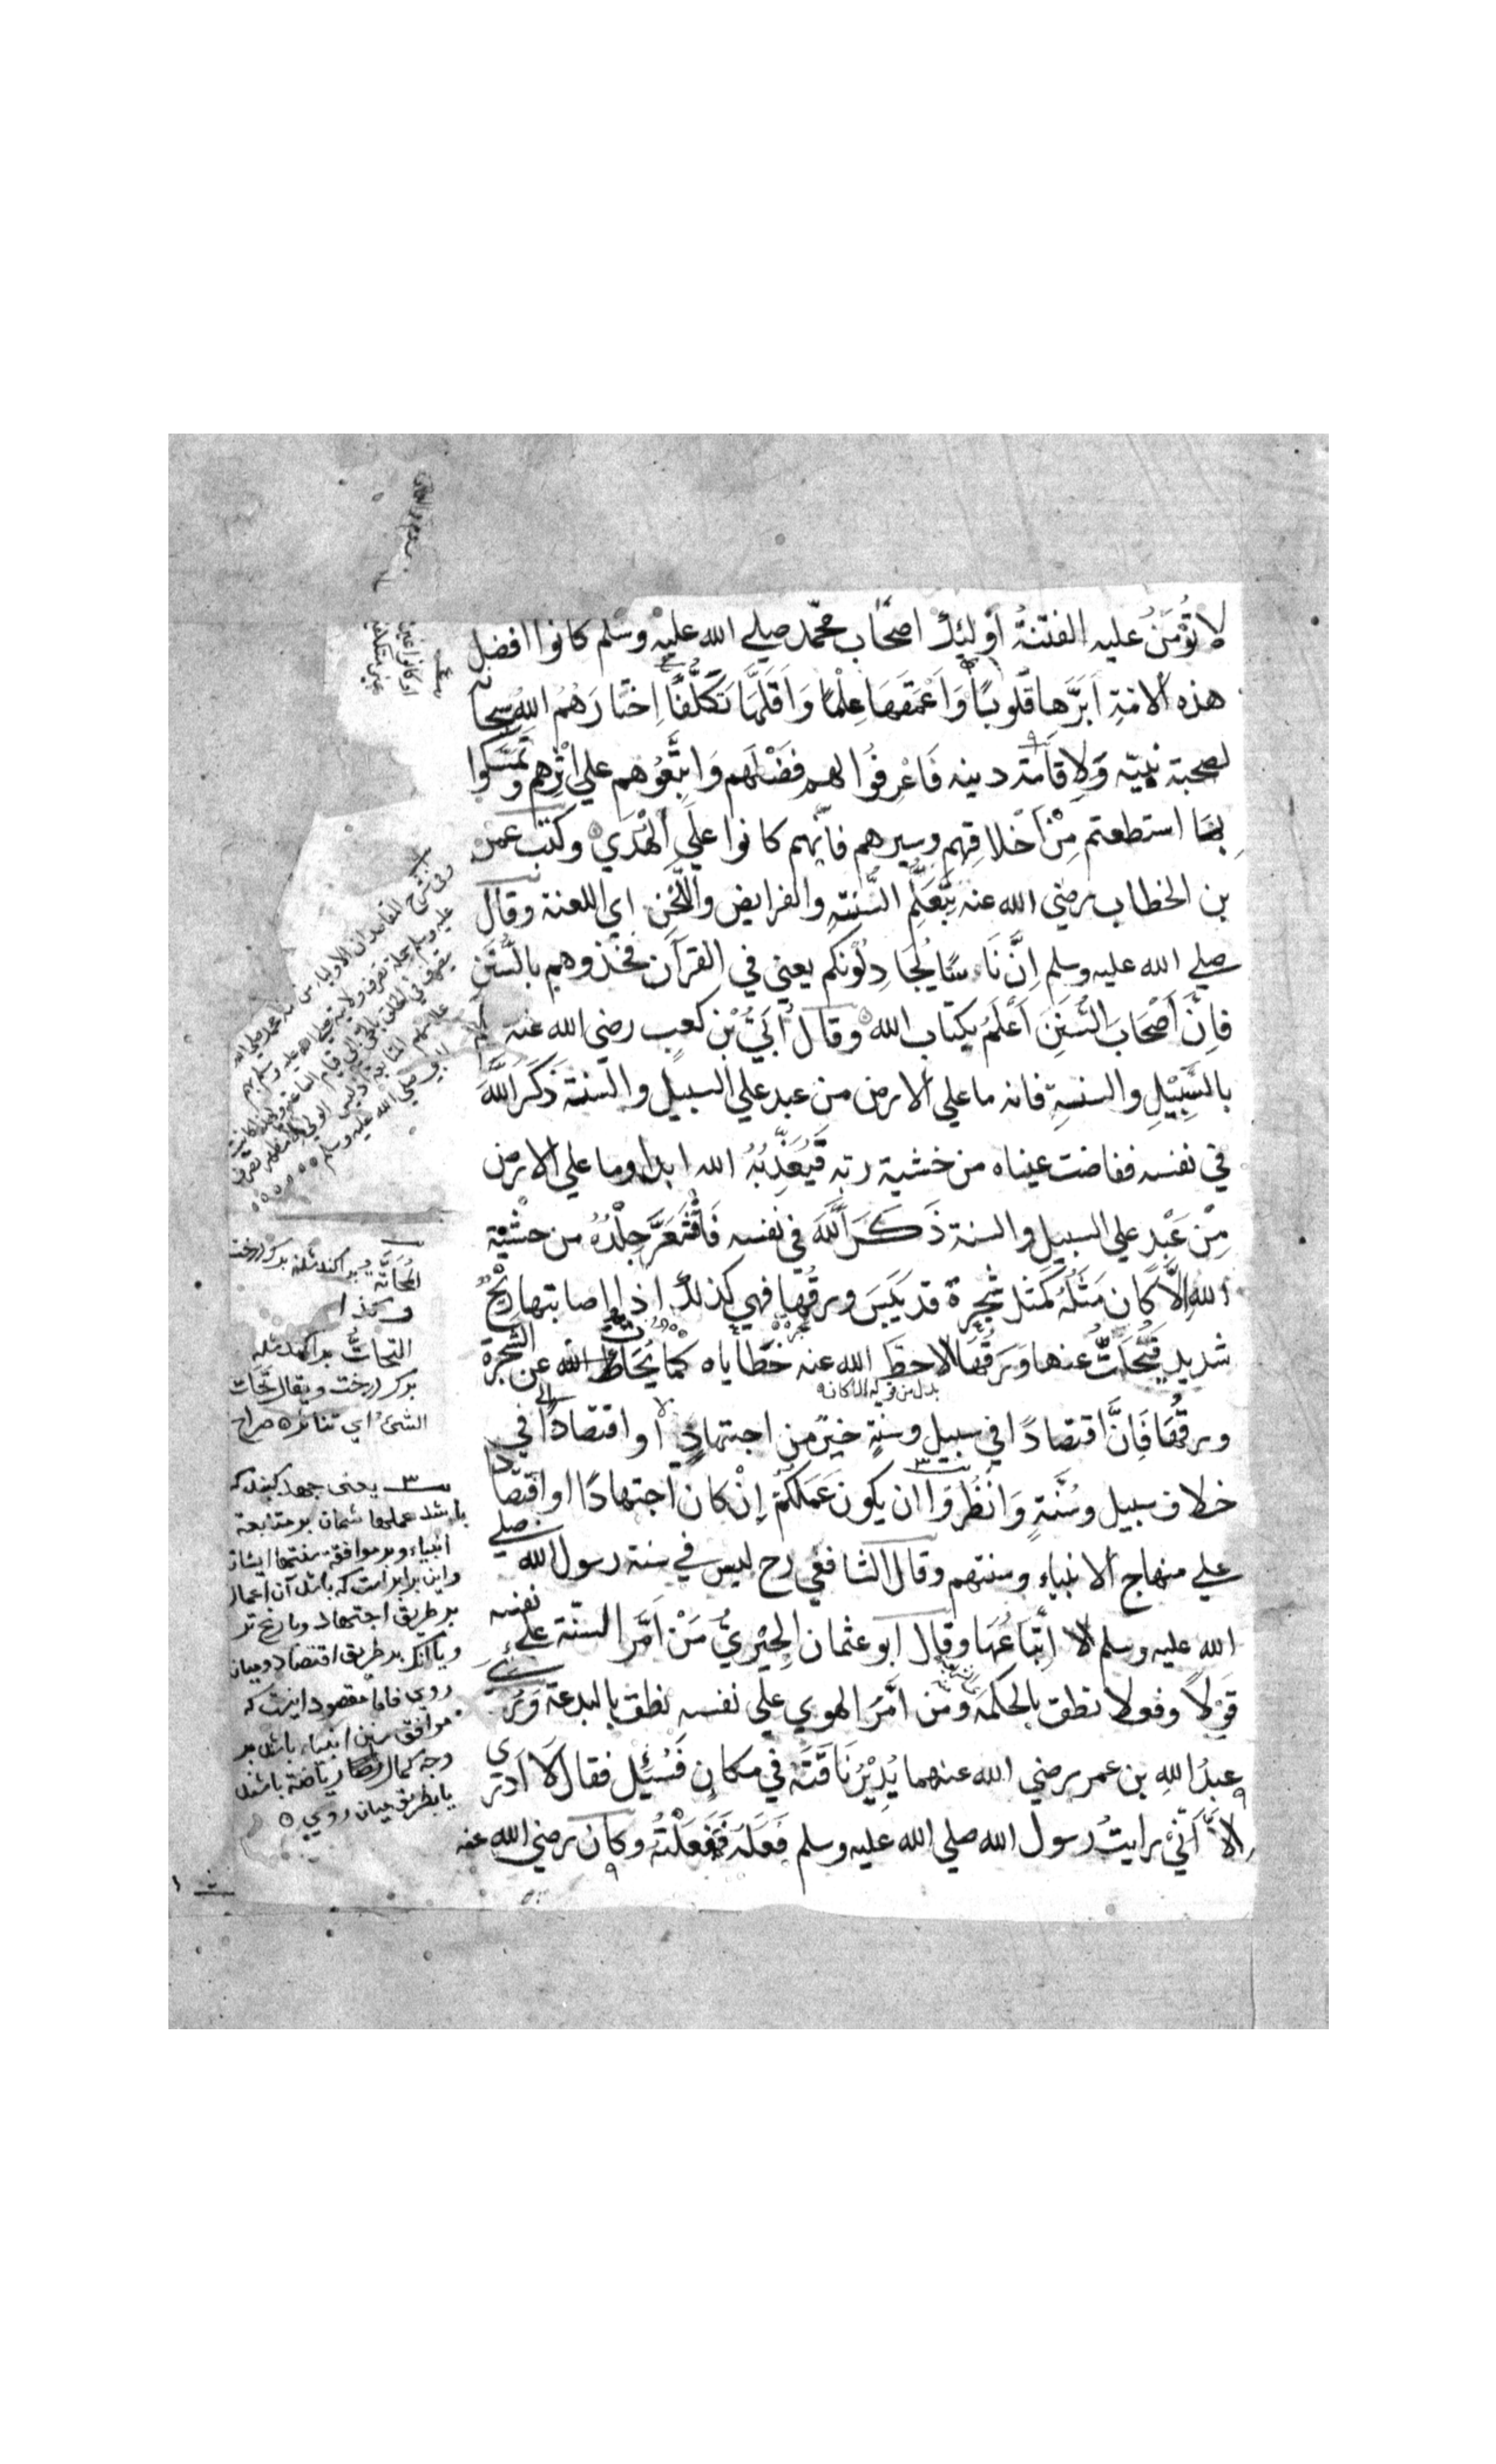 لا تُؤْمَنُ عليه الفتنةُ أولئِكَ اصحَاب محمّد صلي الله عليه وسلم كانوا افضل
هذه الامة اَبَرَّها قُلُوبًا وَاَعْمَقَهَا عِلْمًا وَاَقَلَّهَا تَكَلُّفًا اِختَارَهُمُ الله سبحانه
لصحبة نبيّه وَلِاِقَامَة دينه فَاعْرِفُوا لهم فَضْلَهم وَاتَّبِعُوهم علي اَثْرِهِم وتَمَسَّكُوا
بمَا استطعتم مِنْ اَخْلاقِهم وسيرهم فانّهم كانوا عَلَي الْهُدَي ه وكتب عمر
بن الخطاب رضي الله عنه بِتَعَلُّمِ السُّنَّةِ والفرايض واللَّحْنِ اي اللعنة وقال
صلي الله عليه وسلم اِنَّ نَاسًا يُجَادِلُونكم يعني في القرآن فخذوهم بالسُّنَنِ
فَاِنَّ اَصْحَابَ السُّنَنِ اَعْلَمُ بكتاب الله ه وقال اُبَيُّ بْن كعبٍ رضي الله عنه عليكم
بالسَّبِيْلِ والسنةِ فانه ما علي الارض من عبد علي السبيل والسنة ذَكَرَ اللَّهَ
في نفسه ففاضت عيناه من خشية ربه فَيُعَذِّبُهُ الله ابدا وما علي الارض
مِنْ عَبْدٍ علي السبيل والسنة ذَكَرَ اللَّهَ في نفسه فَاقْشَعَرَّ جِلْدُهُ من خشية
الله اِلَّا كان مَثَلُهُ كَمَثَلِ شجرة قد يَبِسَ ورقُها فهي كذلك اذا اصابتها ريحٌ
شديد فَتَحَاتَّ عنها وَرَقُهَا الا حطّ الله عنه خَطَاياه كَمَا يُحَاتُّ الله عن الشجرة
بدل من قوله الا كان ه
ورقُهَا فَاِنَّ اقتصادًا في سبيل وسنةٍ خيرٌ من اجتهادٍ او اقتصادًا في
خلاف سبيل وسُنَّةٍ وَانْظُرُوا ان يكون عَمَلُكُمْ اِنْ كان اجتهادًا او اقتصادا
علي منهاج الانبياء وسنتهم وقال الشافعي رح ليس في سنة رسول الله صلي
الله عليه وسلم الا اتّباعُهَا وقال ابو عثمان الحِيْرِيُّ مَنْ اَمَّرَ السنّة علي نفسه
قَوْلاً وفعلا نطق بالحكمة ومن امَّرَ الهوي علي نفسه نطق بالبدعة وَرُئِيَ
عبدُ اللهِ بن عمر رضي الله عنهما يُدِيْرُ نَاقَتَهُ في مكانٍ فَسُئِلَ فقال لَا اَدْرِي
اِلاَّ اَنِّيْ رايتُ رسول الله صلي الله عليه وسلم فَعَلَهُ فَفَعَلْتُهُ وكان رضي الله عنه
وكذا
التحاتُّ پراكنده شدن
برك درخت ويقال تحات
الشئُ اي تناثر ه صراح
يعني جهد كنيد كه
باشد عملها شمان بر متابعة
انبياء وبر موافقة سنتها ايشان
واين برابر است كه باشد آن اعمال
بر طريق اجتهاد وبا رنج تر
ويا آنكه بر طريق اقتصاد وميان
روي فاما مقصود اينست كه
موافق سنن انبياء باشد بر
وجه كمال رياضة باشد
يا بطريق ميان روي ه